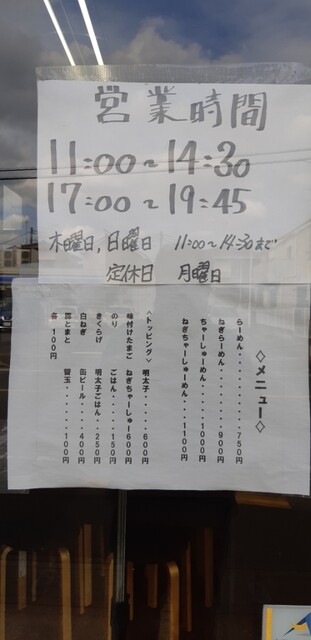 営業時間
11:00~14:30
17:00~19:45
木曜日,日曜日 11:00~14:30まで
定休日 月曜日
◇メニュー◇
らーめん・・・・・・・・750円
ねぎらーめん・・・・・・900円
ちゃーしゅーめん・・・・1000円
ねぎちゃーしゅーめん・・1100円
<トッピング> 明太子・・・・・600円
味付けたまご ねぎちゃーしゅー600円
のり ごはん・・・・150円
きくらげ 明太子ごはん・・250円
白ねぎ 缶ビール・・・・400円
皿とまと 替玉・・・・・100円
各100円